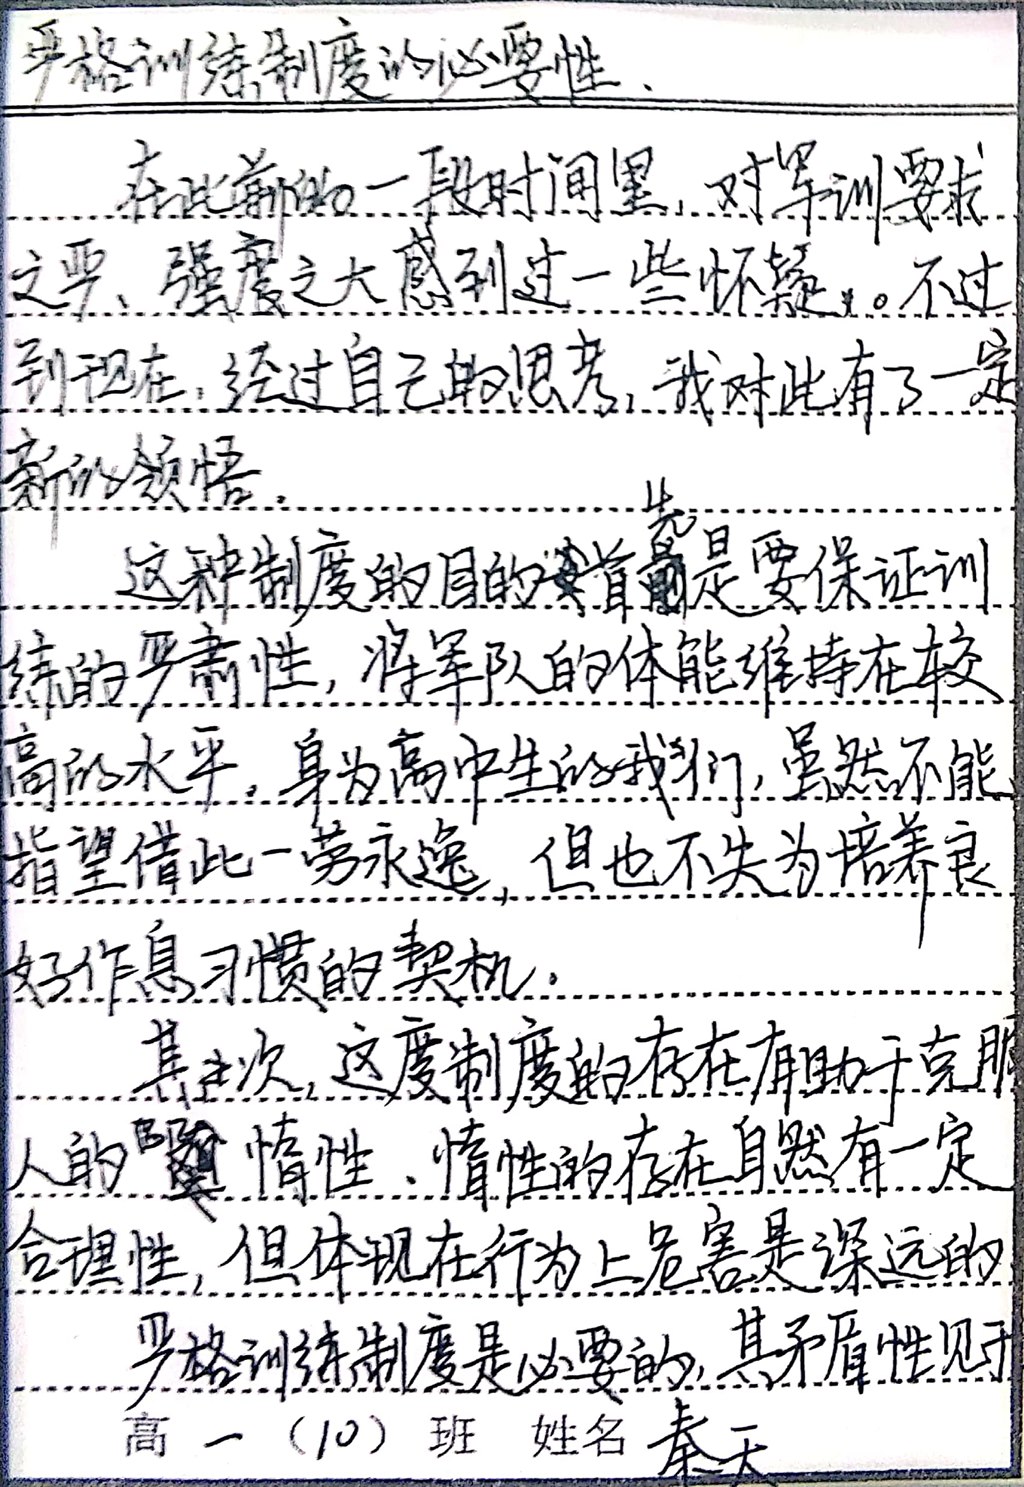 严格训练制度的必要性.
在此前的一段时间里,对军训要求
之严、强度之大感到过一些怀疑。不过
到现在,经过自己的思考,我对此有了一定
新的领悟.
这种制度的目的首先是要保证训
练的严肃性,将军队的体能维持在较
高的水平。身为高中生的我们,虽然不能
指望借此一劳永逸,但也不失为培养良
好作息习惯的契机.
其次,这度制度的存在有助于克服
人的惰性、惰性的存在自然有一定
合理性,但体现在行为上危害是深远的
严格训练制度是必要的,其矛盾性见于
高一(10)班 姓名 秦天